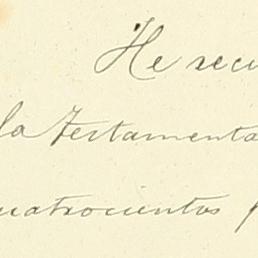 He reci
la testamenta
cuatrocientos p